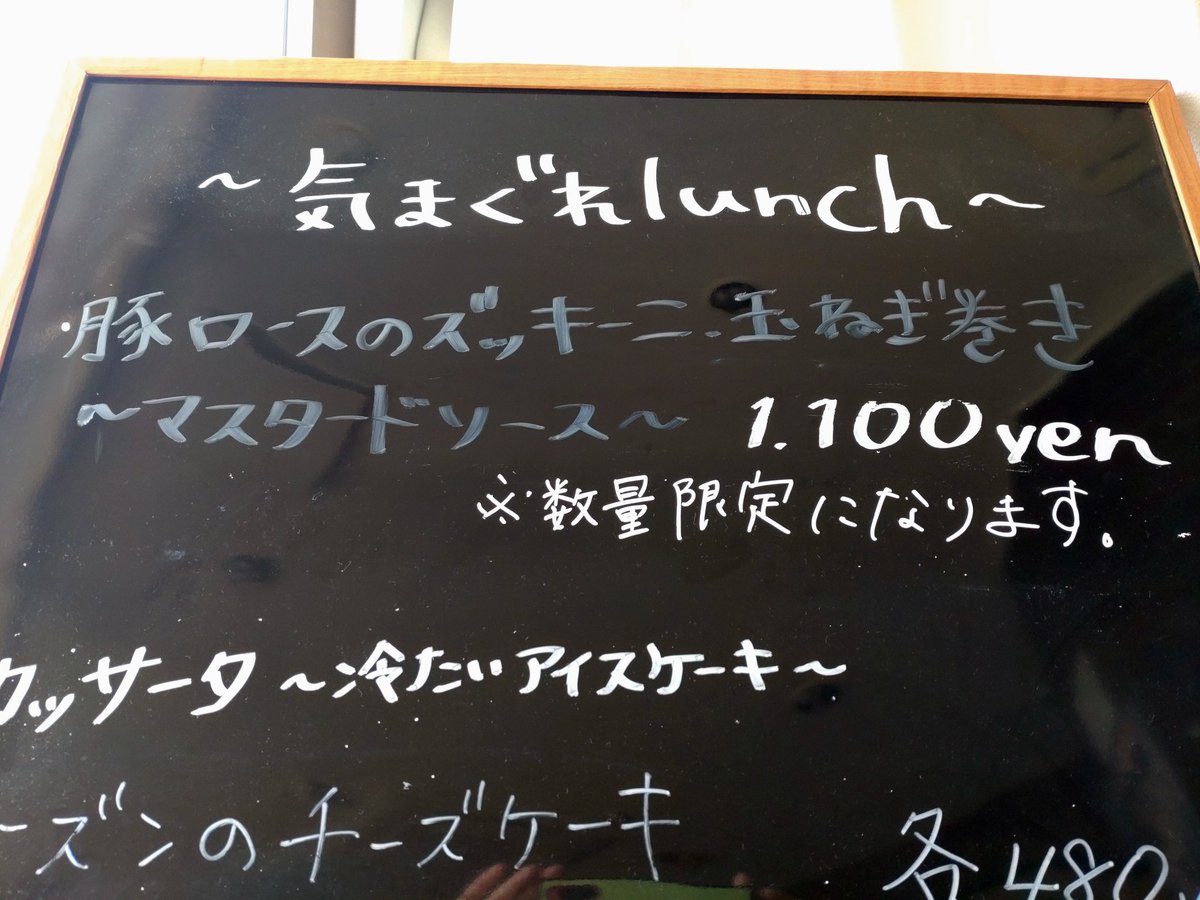 ～気まぐれlunch～
・豚ロースのズッキーニ・玉ねぎ巻き
～マスタードソース～ 1.100yen
※数量限定になります。
カッサータ～冷たいアイスケーキ～
ーズンのチーズケーキ 各480